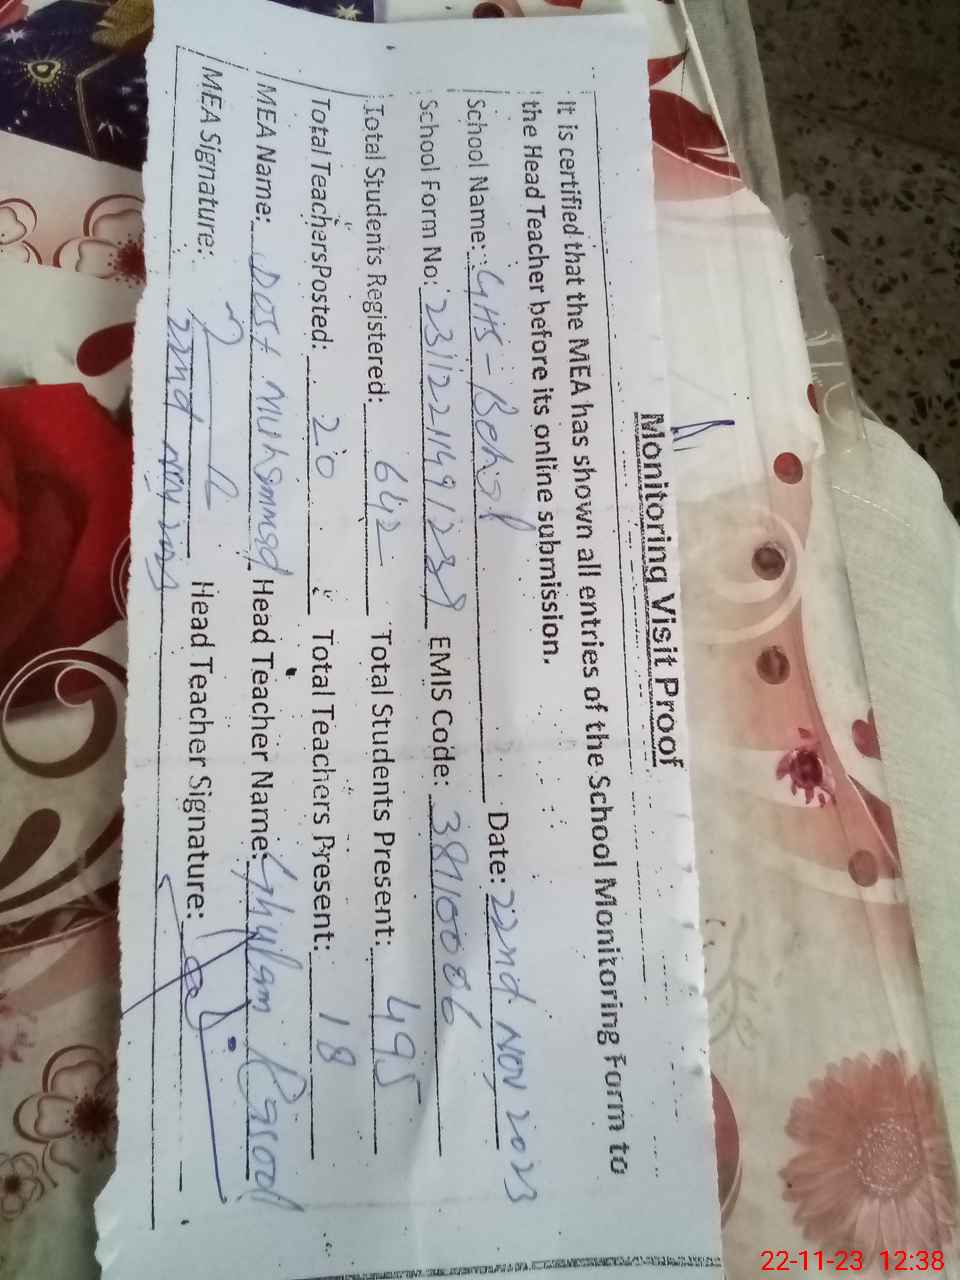 Monitoring Visit Proof
It is certified that the MEA has shown all entries of the School Monitoring Form to
the Head Teacher before its online submission.
School Name: GHS - Behal Date: 22nd NOV 2023
School Form No: EMIS Code:
Total Students Registered: 642 Total Students Present: 495
Total Teachers Posted: 20 Total Teachers Present: 18
MEA Name: Dost Muhammad Head Teacher Name: Ghulam Rasool
MEA Signature: Head Teacher Signature:
22nd NOV 2023
22-11-23 12:38